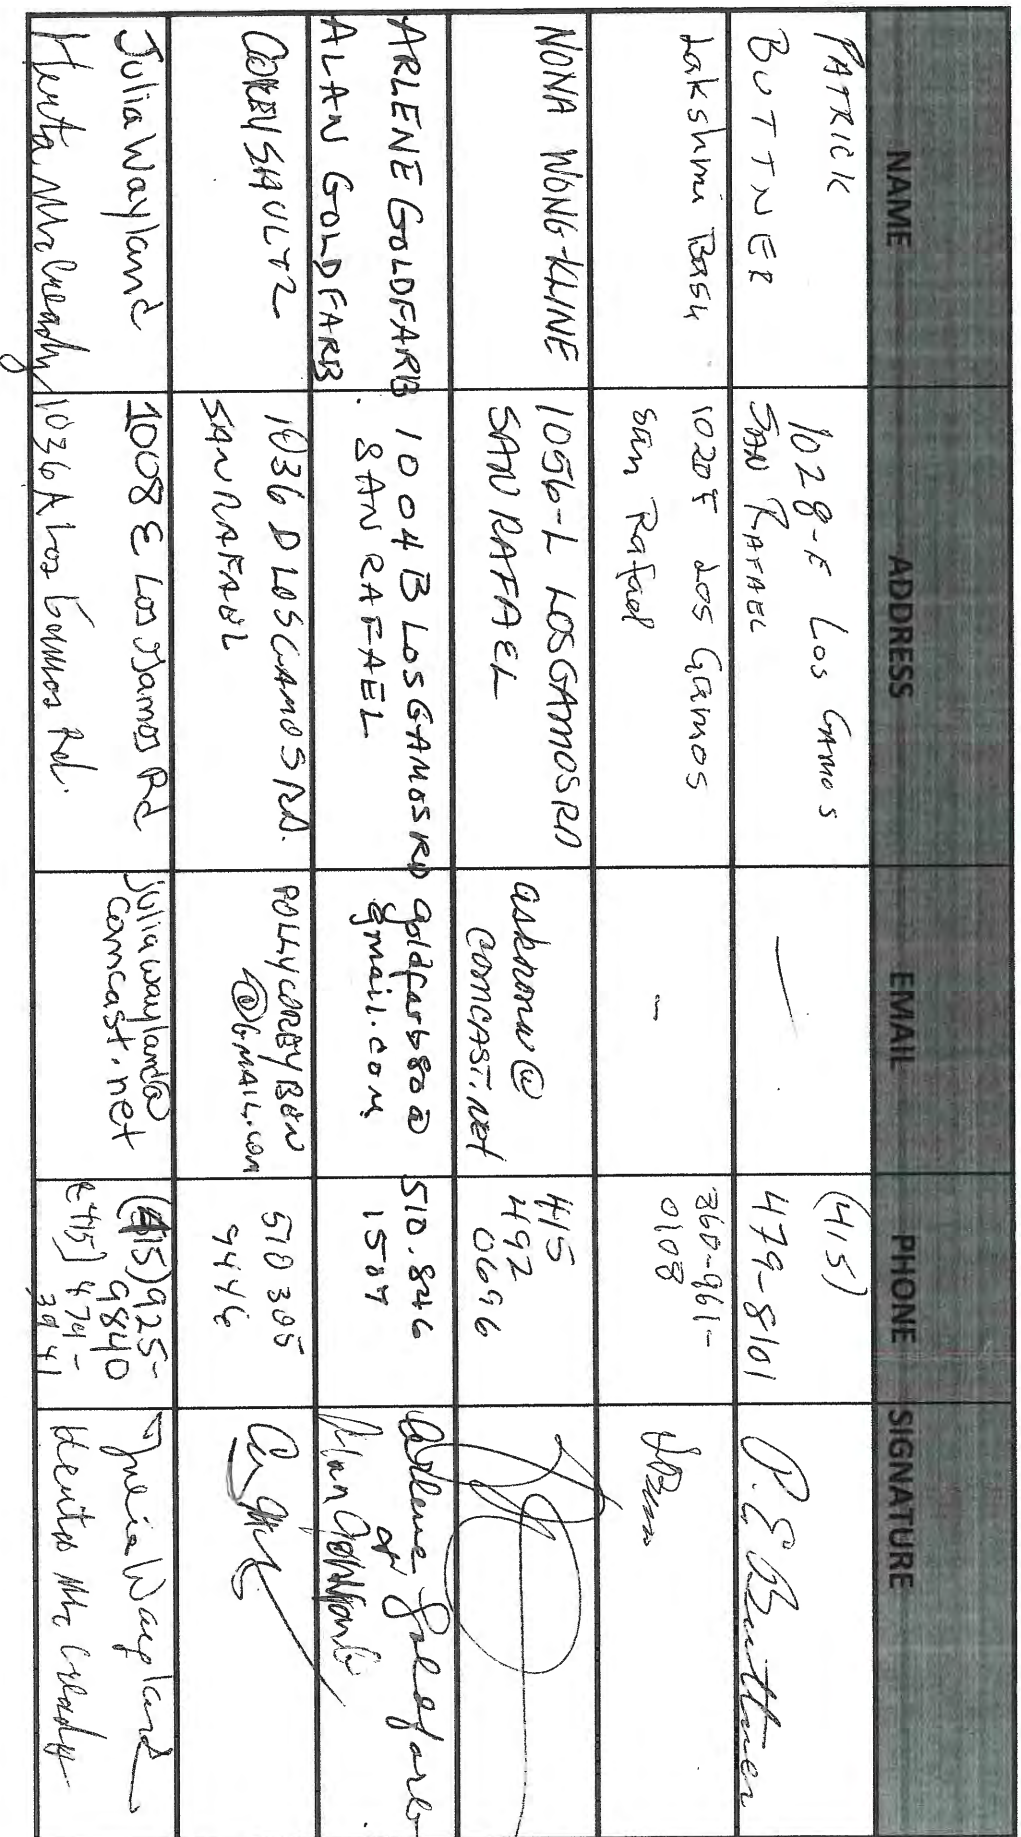 NAME ADDRESS EMAIL PHONE SIGNATURE
PATRICK
BUTTNER
1028-F Los Gamos
SAN RAFAEL
—
(415)
479-8101
P. E. Buttner
Lakshmi Basu
1020F Los Gamos
San Rafael
-
360-961-
0108
NONA WONG-KLINE
1056-L LOS GAMOS RD
SAN RAFAEL
asknona@
comcast.net
415
492
0696
ARLENE GOLDFARB
ALAN GOLDFARB
1004B LOS GAMOS RD
SAN RAFAEL
goldfarb80@
gmail.com
510.846
1507
Arlene Goldfarb
or
Alan Goldfarb
COREY SHULTZ
1036 D LOS GAMOS RD.
SAN RAFAEL
POLLYCOREYBEN
@GMAIL.COM
510 305
9446
Julia Wayland
1008 E Los Gamos Rd
juliawayland@
comcast.net
(415) 925-
9840
Julia Wayland
Herta McCready
1036 A Los Gamos Rd.
(415) 479-
3941
Herta McCready